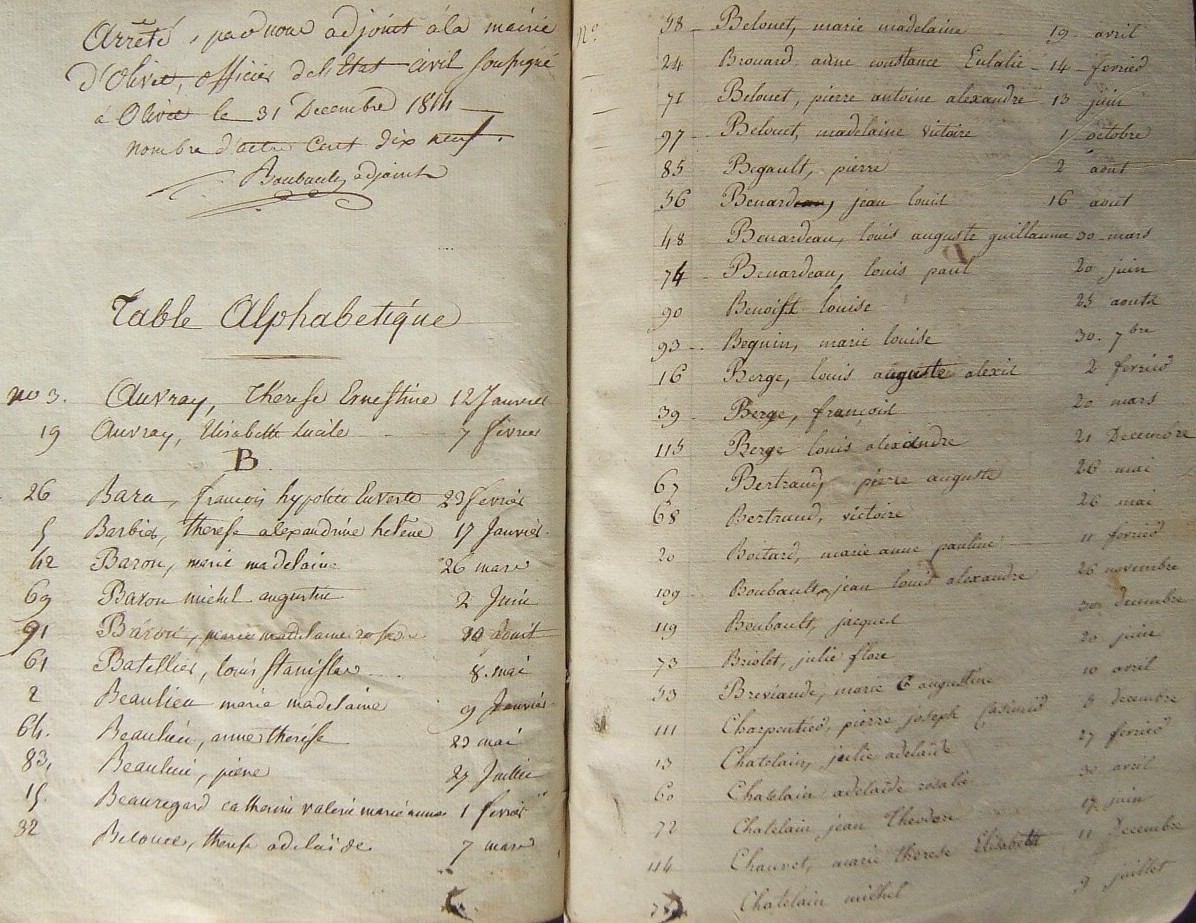 Arrêté, par nous adjoint à la mairie
d'Olivet, officier de l'Etat civil soussigné
à Olivet le 31 Decembre 1814
nombre d'actes Cent dix neuf.
Boubault, adjoint
Table Alphabetique
no 3. Auvray, Therese Ernestine 12 Janvier
19 Auvray, Elisabeth Lucile 7 fevrier
B
26 Bara, francois hypolite Euverte 23 fevrier
5 Barbier, therese alexandrine helene 17 Janvier
42 Baron, marie madelaine 26 mars
69 Baron michel augustin 2 Juin
91 Baron, marie madelaine rose 30 aout
61 Batellier, louis stanislas 8. mai
2 Beaulieu marie madelaine 9 Janvier
64. Beaulieu, anne therese 23 mai
83, Beaulieu, pierre 27 Juillet
15. Beauregard catherine valerie marie anne 1 fevrier
32 Belouet, therese adelaïde 7 mars
No. 58 Belouet, marie madelaine 19 avril
24 Brouard, anne constance Eulalie 14 fevrier
71 Belouet, pierre antoine alexandre 13 juin
97 Belouet, madelaine victoire 1 octobre
85 Begault, pierre 2 août
56 Benardeau, jean louis 16 aout
48 Benardeau, louis auguste guillaume 30 mars
74 Benardeau, louis paul 20 juin
90 Benoist louise 25 aoust
93 Beguin, marie louise 30. 7bre
16 Berge, louis auguste alexis 2 fevrier
39 Berge, françois 20 mars
115 Berge louis alexandre 21 Decembre
67 Bertraud, pierre auguste 26 mai
68 Bertraud, victoire 26 mai
20 Boitard, marie anne pauline 11 fevrier
109 Boubault, jean louis alexandre 26 novembre
119 Boubault, jacques 30 decembre
73 Briolet, julie flore 20 juin
53 Breviande, marie augustine 10 avril
111 Charpentier, pierre joseph Casimir 5 decembre
13 Chatelain, julie adelaide 27 fevrier
60 Chatelain adelaïde rosalie 30 avril
72 Chatelain jean Theodore 17 juin
114 Chauvet, marie therese Elisabeth 11 Decembre
Chatelain michel 9 juillet